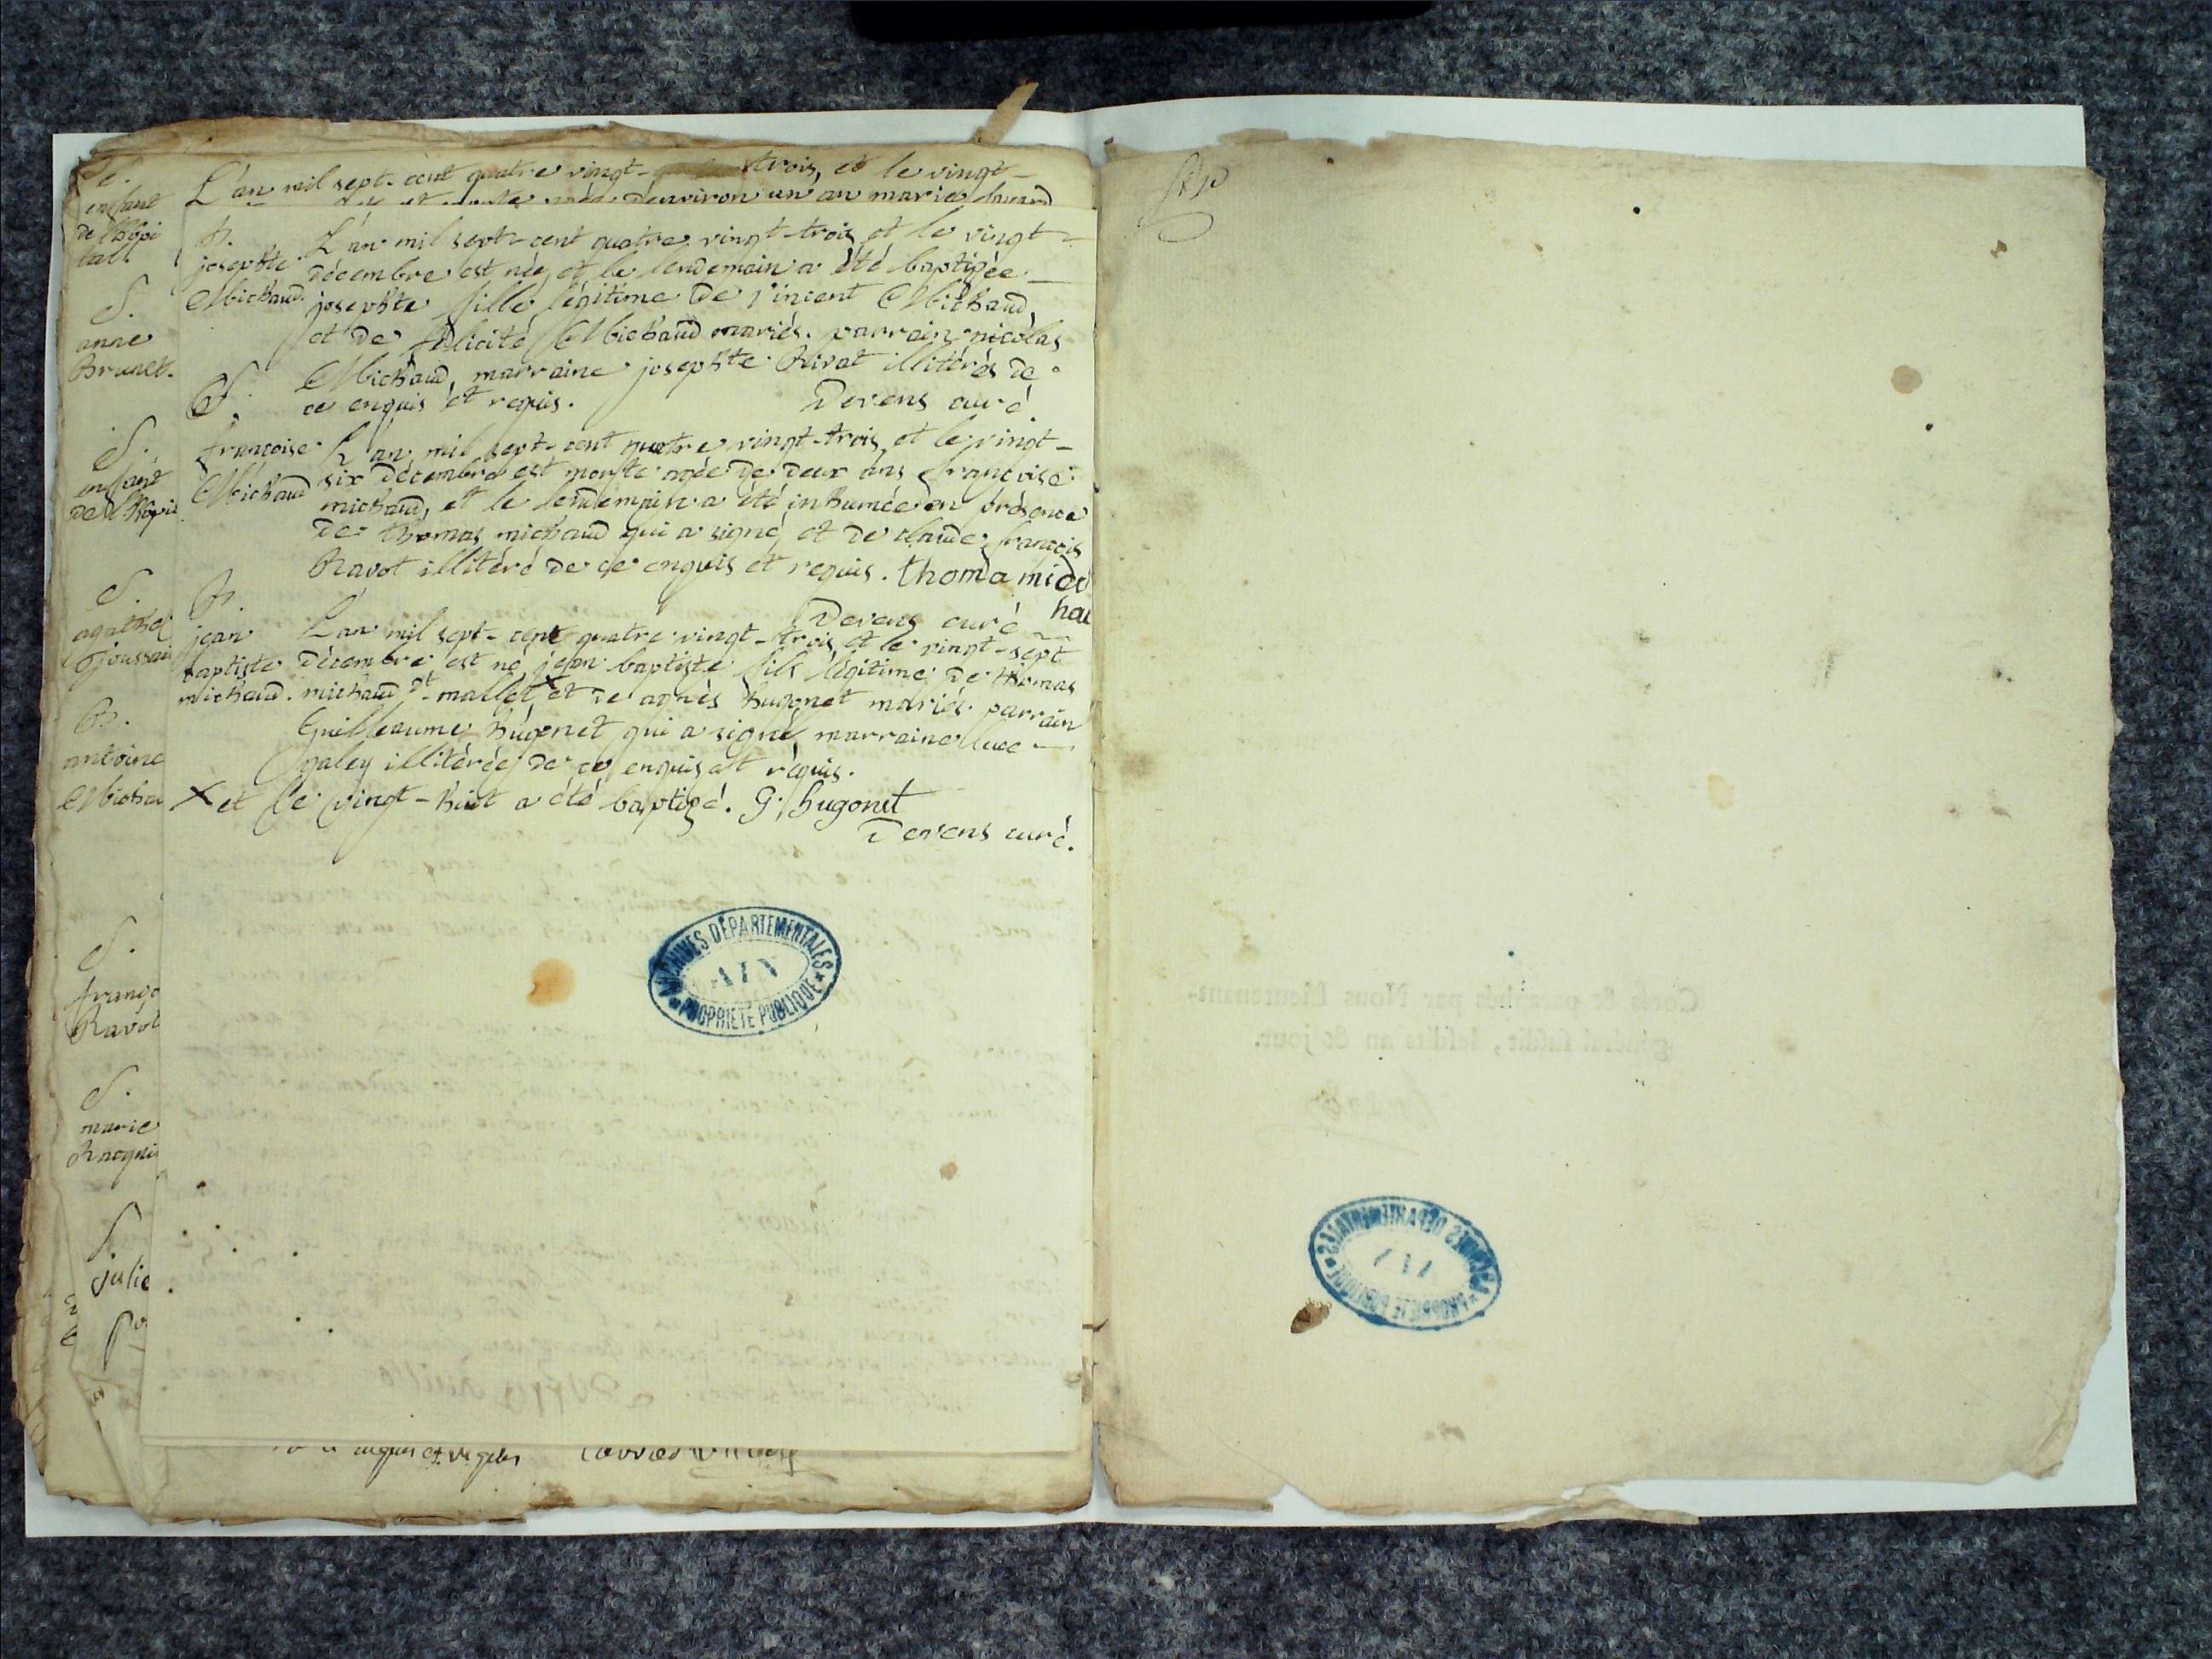 S.
enfant
de l'hôpi
tal.
S.
anne
Brunet.
S.
enfant
de l'hôpi
S.
agathe
Joussai
B.
antoine
Michau
S.
franço
Ravot
S.
marie
Racqui
S.
julie
L'an mil sept-cent quatre vingt- trois, et le vingt-
d'environ un an marie
B.
josephte
Michaud.
L'an mil sept-cent quatre vingt-trois et le vingt-
décembre est née, et le lendemain a été baptizée
josephte fille légitime de vincent Michaud,
et de félicité Michaud mariés. parrain nicolas
Michaud, marraine josephte Rivat illitérés de
ce enquis et requis. Devens curé
S.
françoise
Michaud
L'an mil sept-cent quatre vingt-trois, et le vingt-
six décembre est morte agée de deux ans françoise
michaud, et le lendemain a été inhumée en présence
de thomas michaud qui a signé, et de claude françois
Ravot illitéré de ce enquis et requis. thoma mic
hau
Devens curé
B.
jean
baptiste
michaud.
L'an mil sept-cent quatre vingt-trois, et le vingt-sept
décembre est né jean baptiste fils légitime de thomas
michaud dt mallet X et de agnès hugonet mariés. parrain
Guilleaume hugonet qui a signé, marraine luce
galey illitérée de ce enquis et requis.
X et le vingt-huit a été baptizé. G. hugonet
Devens curé.
ARCHIVES DÉPARTEMENTALES
AIN
PROPRIÉTÉ PUBLIQUE
Cotés & paraphés par Nous Lieutenant-
général susdit, lesdits an & jour.
ARCHIVES DÉPARTEMENTALES
AIN
PROPRIÉTÉ PUBLIQUE